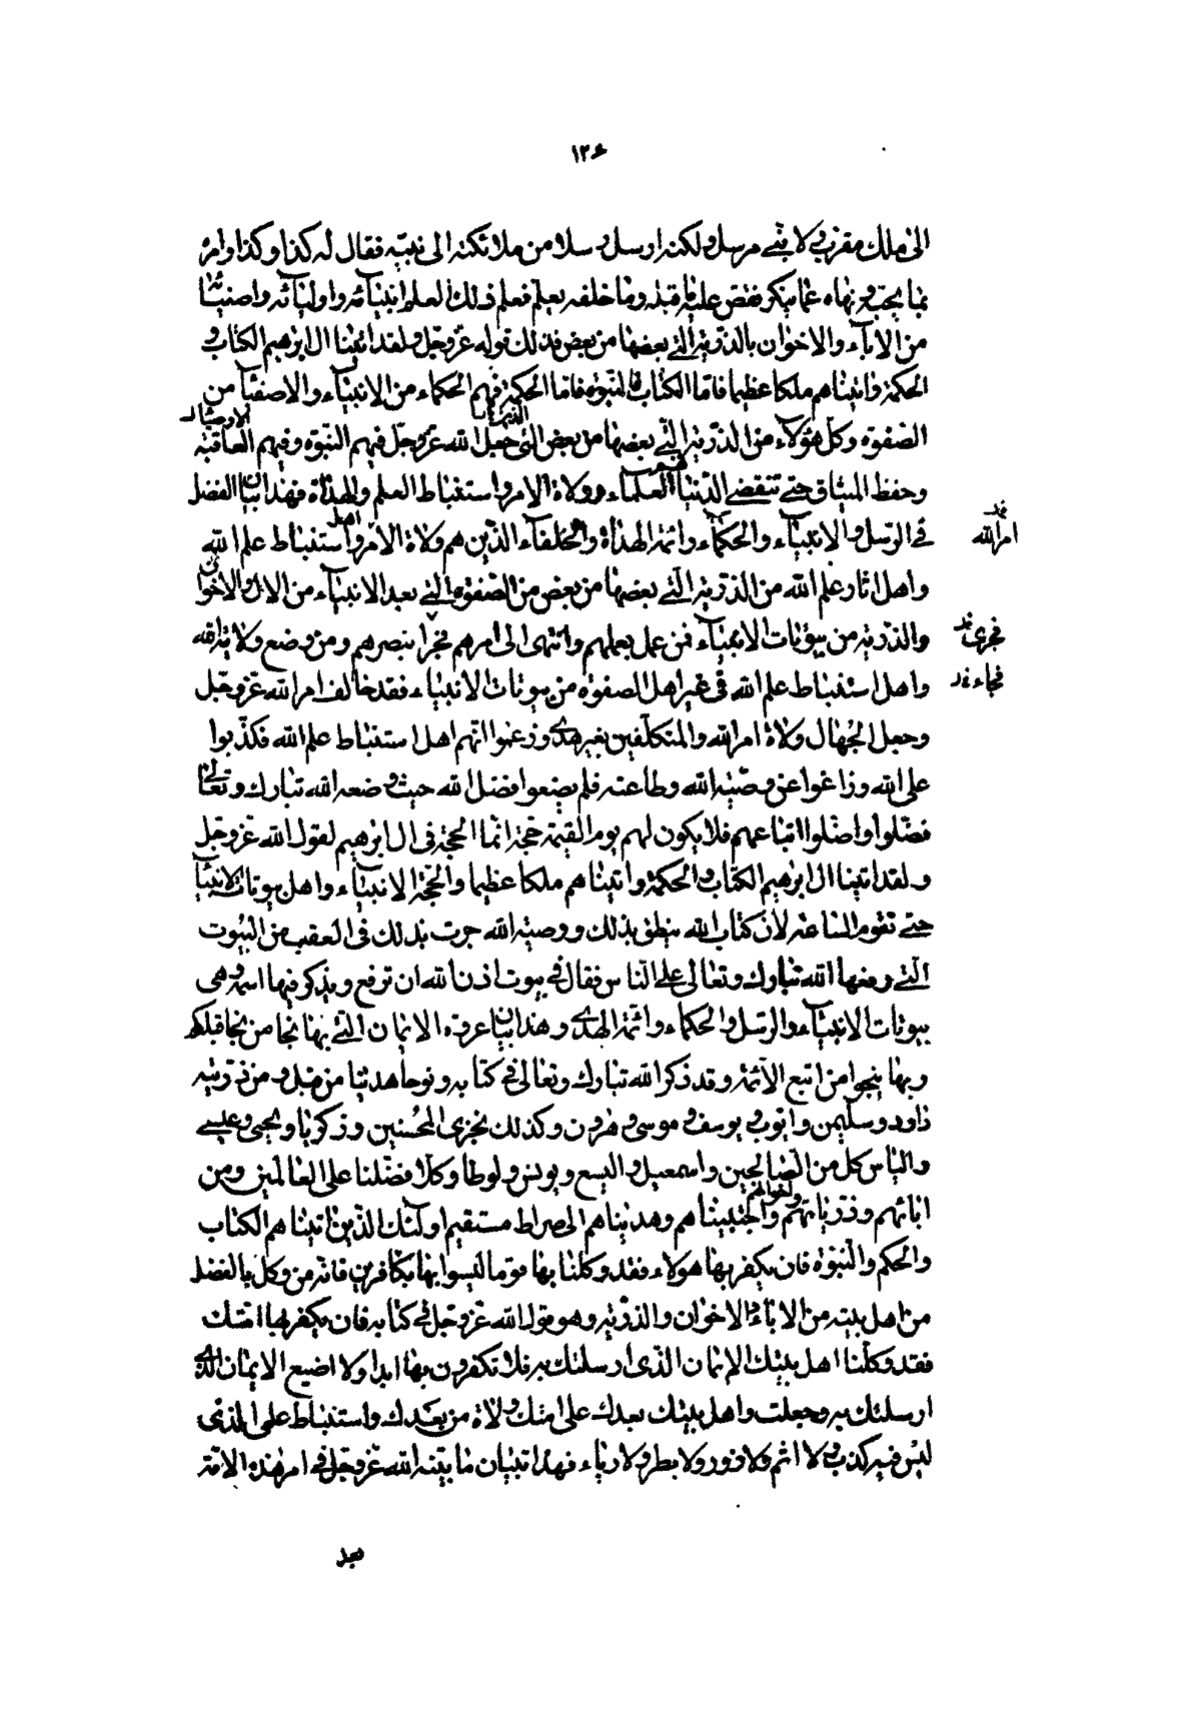 ١٢٤
الى ملك مقرب ولا نبي مرسل ولكنه ارسل رسلا من ملائكته الى نبيه فقال له كذا وكذا وامره
بما يحب ونهاه عما ينكر فقص عليه ما قبله وما خلفه بعلم فعلم ذلك العلم انبيائه واوليائه واصفيائه
من الاباء والاخوان بالذرية التي بعضها من بعض فذلك قوله عز وجل ولقد اتينا ال ابرهيم الكتاب و
الحكمة واتيناهم ملكا عظيما فاما الكتاب فالنبوة فاما الحكمة فهم الحكماء من الانبياء والاصفياء من
الصفوة وكل هؤلاء من الذرية التي بعضها من بعض التي جعل الله عز وجل فيهم النبوة وفيهم العاقبة
وحفظ الميثاق حتى تنقضي الدنيا العلماء وولاة الامر واستنباط العلم والهداة فهذا بيان الفضل
في الرسل والانبياء والحكماء وائمة الهداة والخلفاء الذين هم ولاة الامر واهل استنباط علم الله
امر الله
واهل اثار علم الله من الذرية التي بعضها من بعض من الصفوة التي بعد الانبياء من الال والاخوان
والذرية من بيوتات الانبياء فمن عمل بعلمهم وانتهى الى امرهم فجرا بنصرهم ومن وضع ولاية الله
فجرى
واهل استنباط علم الله في غير اهل الصفوة من بيوتات الانبياء فقد خالف امر الله عز وجل
فجاء
وجعل الجهال ولاة امر الله والمتكلفين بغير هدى وزعموا انهم اهل استنباط علم الله فكذبوا
على الله وزاغوا عن وصية الله وطاعته فلم يضعوا فضل الله حيث وضعه الله تبارك وتعالى
فضلوا واضلوا اتباعهم فلا يكون لهم يوم القيمة حجة انما الحجة في ال ابرهيم لقول الله عز وجل
ولقد اتينا ال ابرهيم الكتاب والحكمة واتيناهم ملكا عظيما والحجة الانبياء واهل بيوتات الانبياء
حتى تقوم الساعة لان كتاب الله ينطق بذلك ووصية الله جرت بذلك في العقب من البيوت
التي رفعها الله تبارك وتعالى على الناس فقال في بيوت اذن الله ان ترفع ويذكر فيها اسمه وهي
بيوتات الانبياء والرسل والحكماء وائمة الهدى وهذا بيان عروة الايمان التي بها نجا من نجا قبلكم
وبها ينجو امن اتبع الائمة وقد ذكر الله تبارك وتعالى في كتابه ونوحا هدينا من قبل ومن ذريته
داود وسليمن وايوب ويوسف وموسى وهرون وكذلك نجزى المحسنين وزكريا ويحيى وعيسى
والياس كل من الصالحين واسمعيل واليسع ويونس ولوطا وكلا فضلنا على العالمين ومن
ابائهم وذرياتهم واخوانهم واجتبيناهم وهديناهم الى صراط مستقيم اولئك الذين اتيناهم الكتاب
والحكم والنبوة فان يكفر بها هولاء فقد وكلنا بها قوما ليسوا بها بكافرين فانه من وكل بالفضل
من اهل بيته من الاباء والاخوان والذرية وهو قول الله عز وجل في كتابه فان يكفر بها امتك
فقد وكلنا اهل بيتك الايمان الذى ارسلتك به فلا تكفرون بها ابدا ولا اضيع الايمان الذى
ارسلتك به وجعلت واهل بيتك بعدك على امتك ولاة من بعدك واستنباط علمى الذى
ليس فيه كذب ولا اثم ولا زور ولا بطر ولا رياء فهذا تبيان ما بينه الله عز وجل في امر هذه الامة